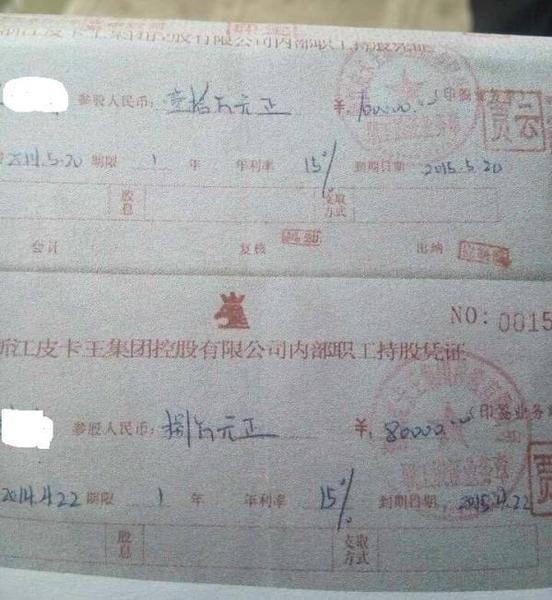 浙江皮卡王集团控股有限公司内部职工持股凭证
参股人民币：壹拾万元正 ￥：100000.00 (印鉴业务
贾云
2014.5.20 期限 1 年 年利率 15% 到期日期 2015.5.20
股息 支取方式
会计 复核 出纳
NO: 0015
浙江皮卡王集团控股有限公司内部职工持股凭证
参股人民币：捌万元正 ￥：80000.00 (印鉴业务
贾
2014.4.22 期限 1 年 年利率 15% 到期日期 2015.4.22
股息 支取方式